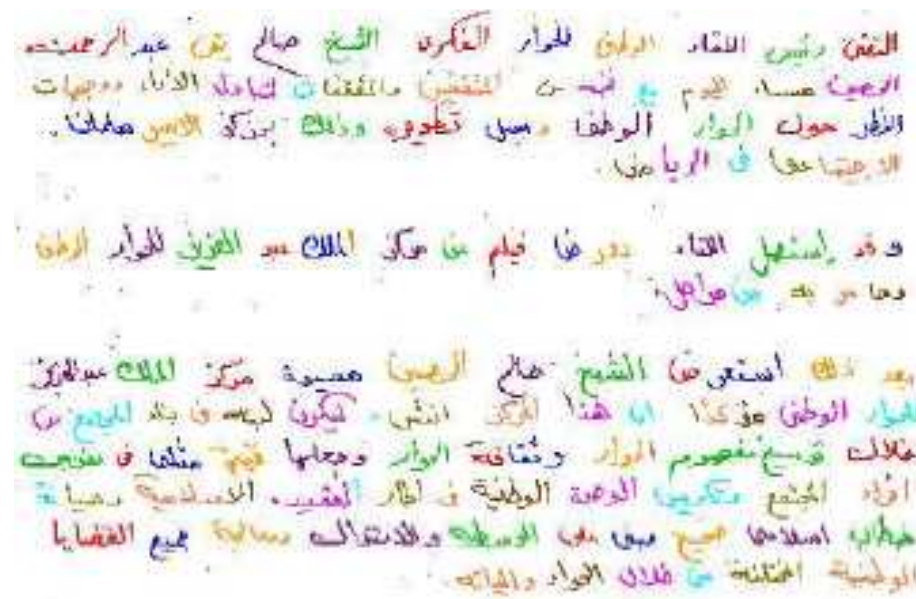 التقى رئيس اللقاء الوطني للحوار الفكري الشيخ صالح بن عبدالرحمن
الحصين مساء اليوم مع نخبة من المثقفين والمثقفات لتبادل الآراء ووجهات
النظر حول الحوار الوطني وسبل تطويره وذلك بمركز الأمير سلمان
الاجتماعي في الرياض.
وقد استهل اللقاء بعرض فيلم عن مركز الملك عبد العزيز للحوار الوطني
وما مر به من مراحل.
بعد ذلك استعرض الشيخ صالح الحصين مسيرة مركز الملك عبدالعزيز
للحوار الوطني مؤكدا ان هذا المركز انشئ ليكون لبنة في بناء المجتمع من
خلال توسيع مفهوم الحوار وثقافة الحوار وجعلها قيمة مثلى في نفوس
افراد المجتمع وتكريس الوحدة الوطنية في اطار العقيدة الاسلامية وصياغة
خطاب اسلامي صحيح مبني على الوسطية والاعتدال ومعالجة جميع القضايا
الوطنية المختلفة من خلال الحوار والياته.